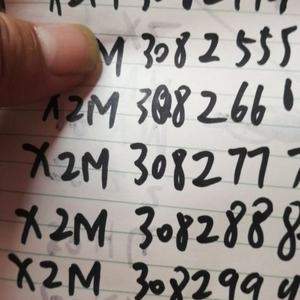 M 3082555
X2M 3082661
X2M 3082777
X2M 3082888
X2M 308299